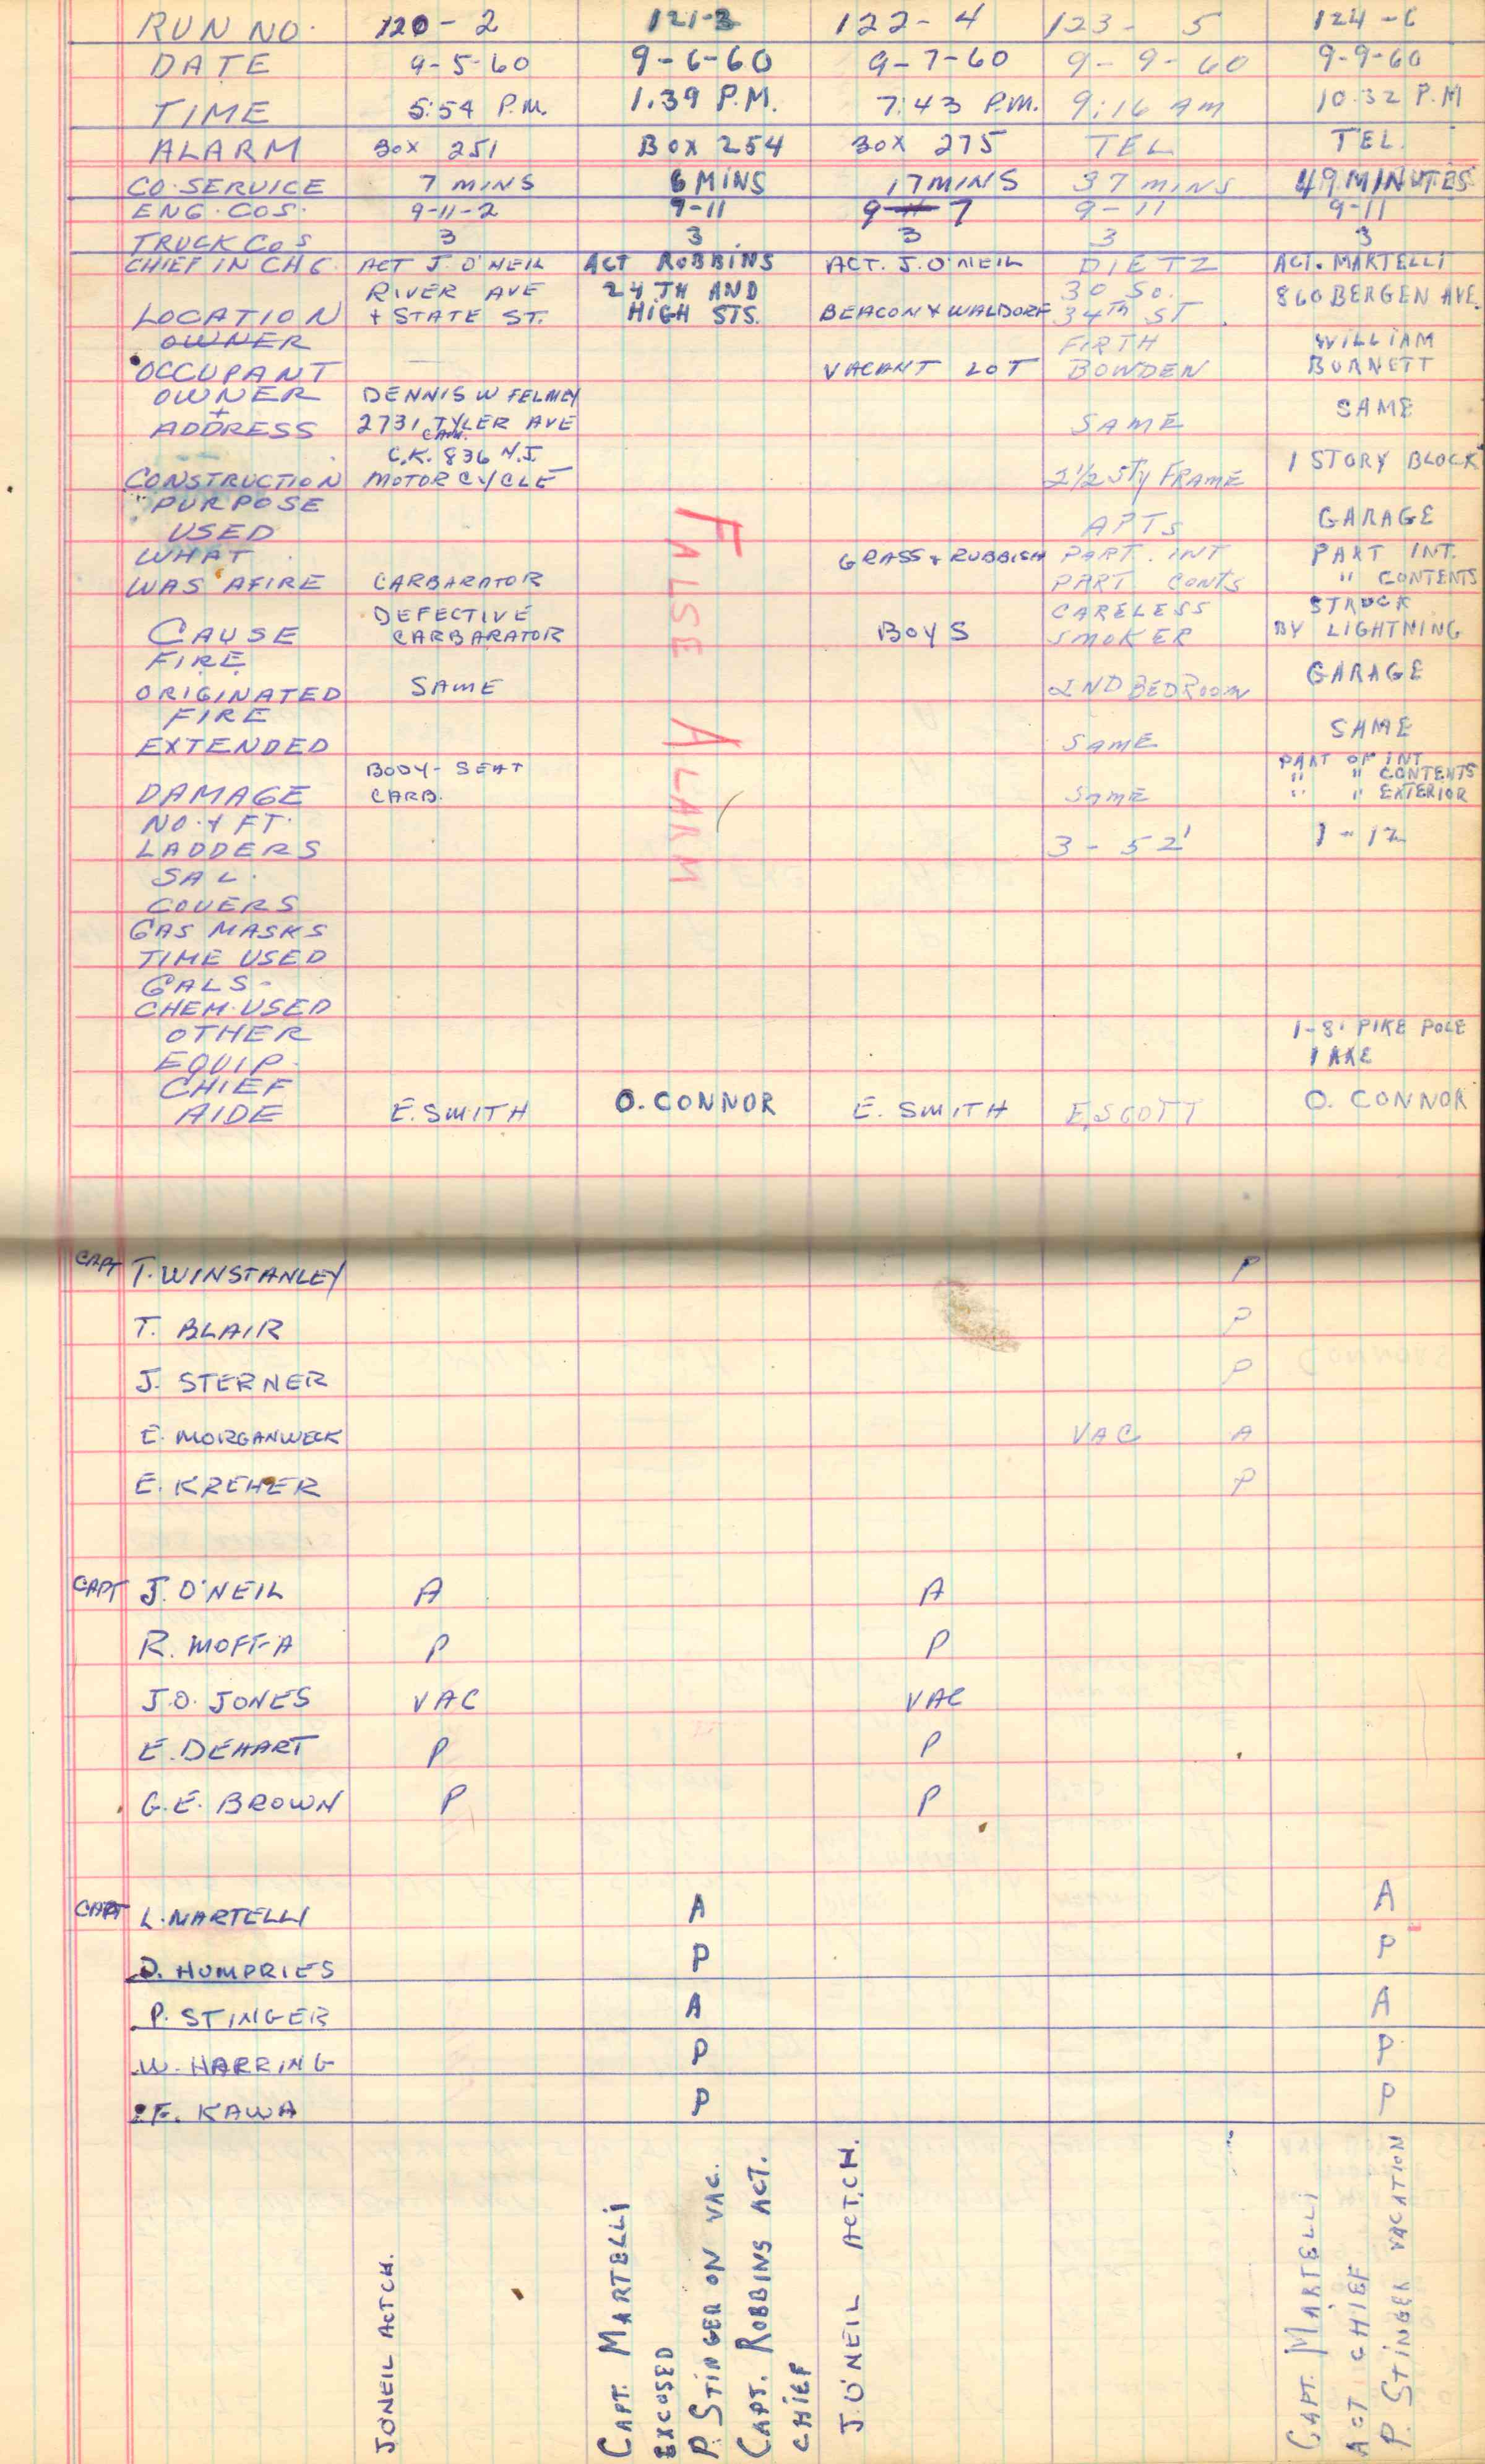 RUN NO. 120-2 121-3 122-4 123-5 124-6
DATE 9-5-60 9-6-60 9-7-60 9-9-60 9-9-60
TIME 5:54 P.M. 1.39 P.M. 7:43 P.M. 9:16 AM 10.32 P.M
ALARM BOX 251 BOX 254 BOX 275 TEL TEL.
CO. SERVICE 7 MINS 6 MINS 17 MINS 37 MINS 49 MINUTES
ENG. COS. 9-11-2 9-11 9-11 7 9-11 9-11
TRUCK COS 3 3 3 3 3
CHIEF IN CHG. ACT J. O'NEIL ACT ROBBINS ACT. J. O'NEIL DIETZ ACT. MARTELLI
RIVER AVE 24TH AND 30 SO. 860 BERGEN AVE.
LOCATION + STATE ST. HIGH STS. BEACON + WALDORF 34TH ST.
OWNER FIRTH WILLIAM
OCCUPANT — VACANT LOT BOWDEN BURNETT
OWNER DENNIS W FELMEY SAME
+
ADDRESS 2731 TYLER AVE SAME
CAM.
C.K. 836 N.J. 1 STORY BLOCK
CONSTRUCTION MOTORCYCLE 2 1/2 STY FRAME
" PURPOSE GARAGE
USED APTS
WHAT GRASS + RUBBISH PART. INT PART INT.
WAS AFIRE CARBARATOR PART CONTS " CONTENTS
DEFECTIVE CARELESS STRUCK
CAUSE CARBARATOR BOYS SMOKER BY LIGHTNING
FIRE GARAGE
ORIGINATED SAME 2ND BEDROOM
FIRE SAME
EXTENDED SAME
BODY-SEAT PART OF INT
" " CONTENTS
DAMAGE CARB. SAME " " EXTERIOR
FALSE ALARM
NO. + FT.
LADDERS 3-52' 1-12
SAL.
COVERS
GAS MASKS
TIME USED
GALS-
CHEM. USED
OTHER 1-8' PIKE POLE
EQUIP. 1 AXE
CHIEF
AIDE E. SMITH O. CONNOR E. SMITH E. SCOTT O. CONNOR
CAPT T. WINSTANLEY P
T. BLAIR P
J. STERNER P
E. MORGANWECK VAC A
E. KREHER P
CAPT J. O'NEIL A A
R. MOFFA P P
J.O. JONES VAC VAC
E. DEHART P P
G.E. BROWN P P
CAPT L. MARTELLI A A
D. HUMPRIES P P
P. STINGER A A
W. HARRING P P
F. KAWA P P
JONEIL ACT CH.
CAPT. MARTELLI
EXCUSED
P. STINGER ON VAC.
CAPT. ROBBINS ACT.
CHIEF
J. O'NEIL ACT. CH.
CAPT. MARTELLI
ACT CHIEF
P. STINGER VACATION